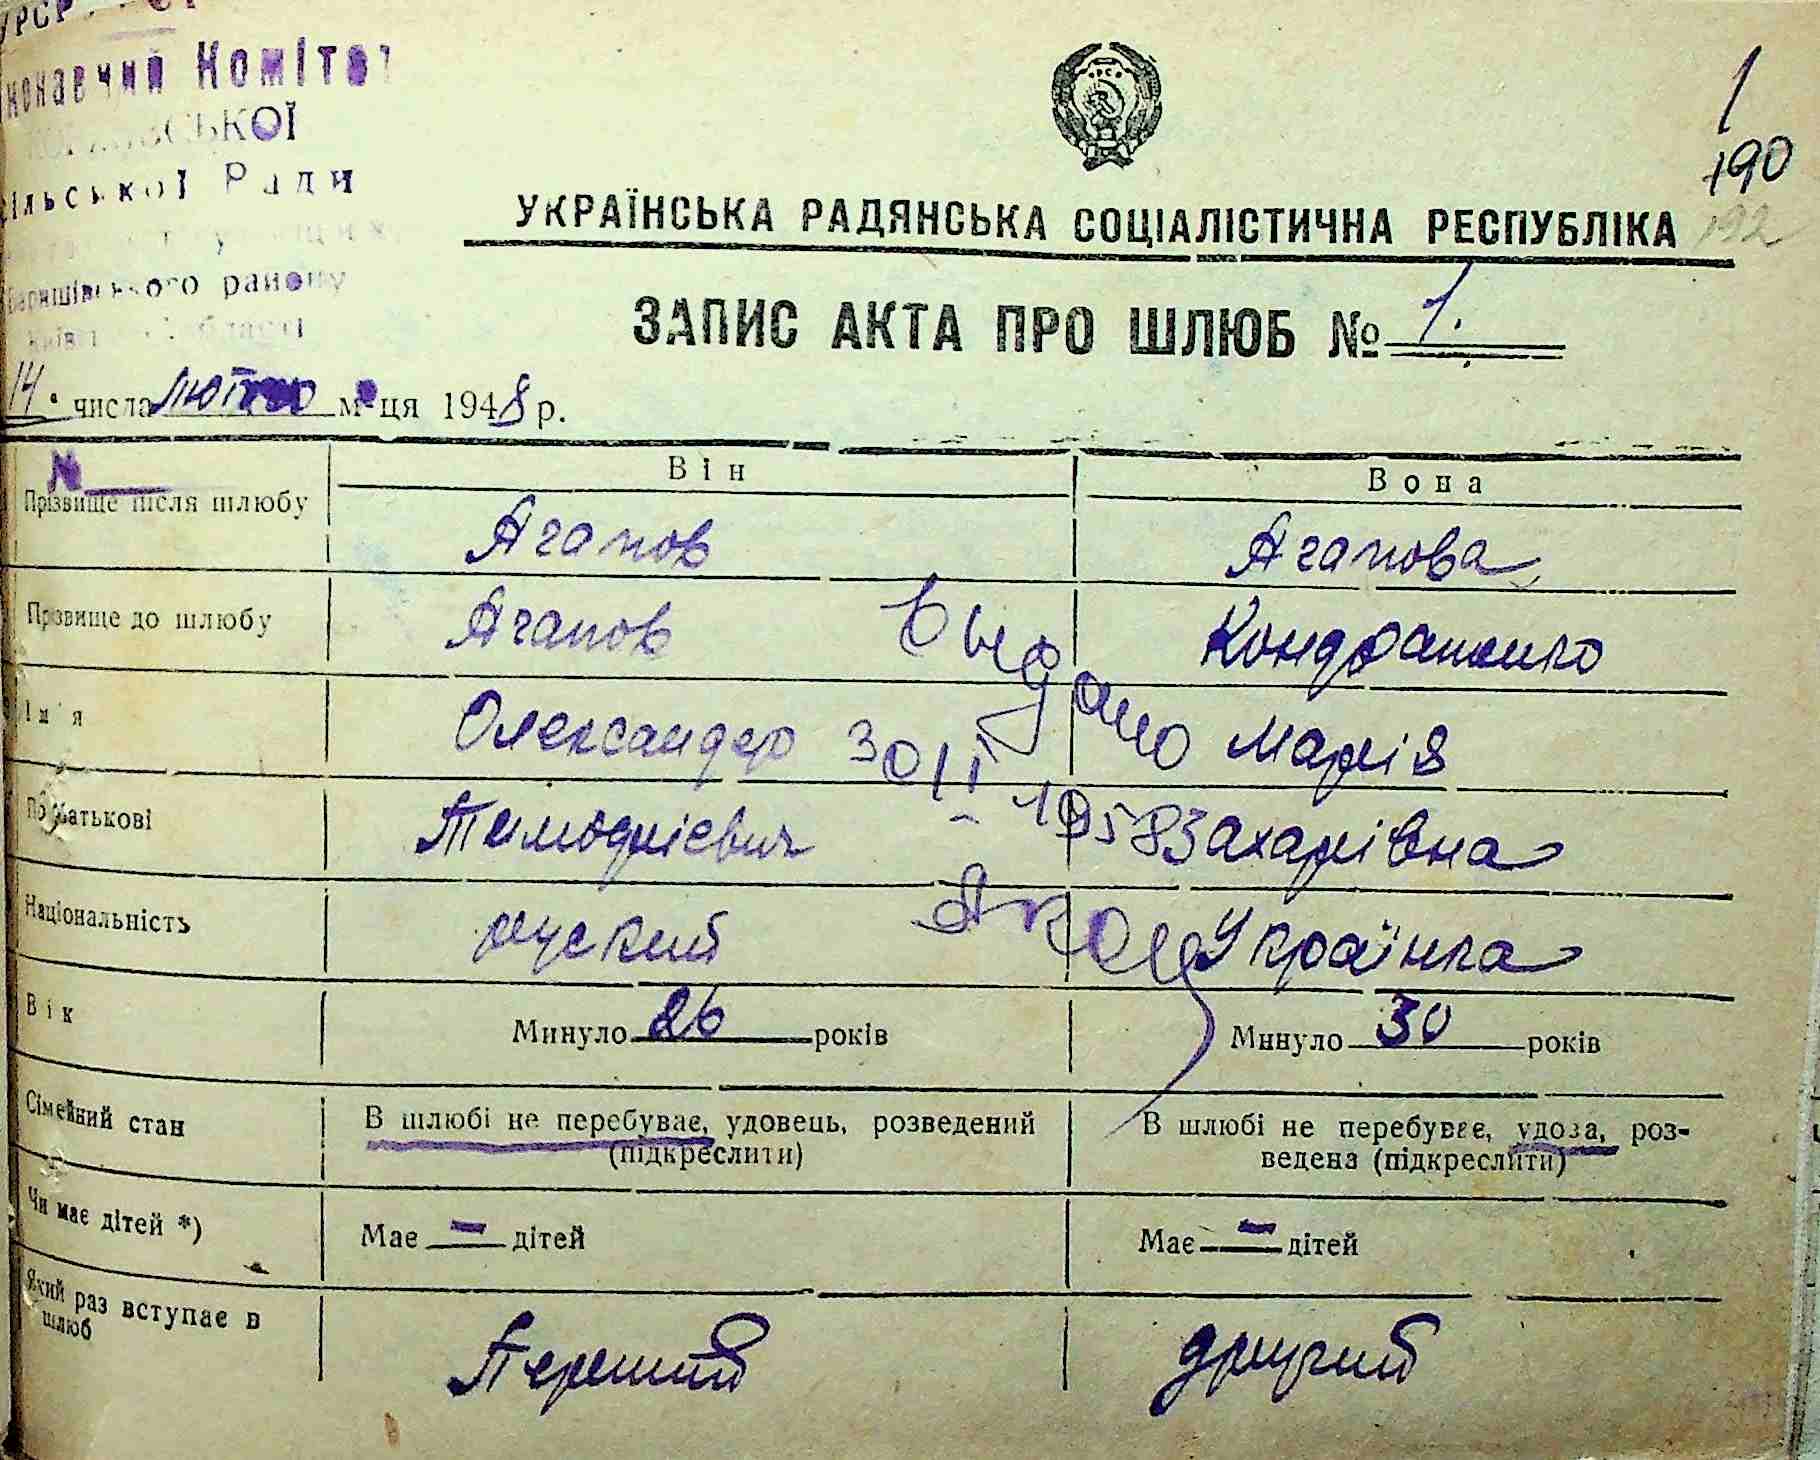 УРСР
Виконавчий Комітет
сільської Ради
Баришівського району
області
1
190
192
УКРАЇНСЬКА РАДЯНСЬКА СОЦІАЛІСТИЧНА РЕСПУБЛІКА
ЗАПИС АКТА ПРО ШЛЮБ № 1.
14. числа лютого м-ця 1948 р.
№
Він Вона
Прізвище після шлюбу Агапов Агапова
Прізвище до шлюбу Агапов Кондратенко
Ім'я Олександер Марія
По батькові Тимофієвич Захарівна
Національність руский Українка
Выдано
30 1958
Вік Минуло 26 років Минуло 30 років
Сімейний стан В шлюбі не перебуває, удовець, розведений (підкреслити) В шлюбі не перебуває, удова, роз-
ведена (підкреслити)
Чи має дітей *) Має — дітей Має — дітей
Який раз вступає в шлюб Перший другий